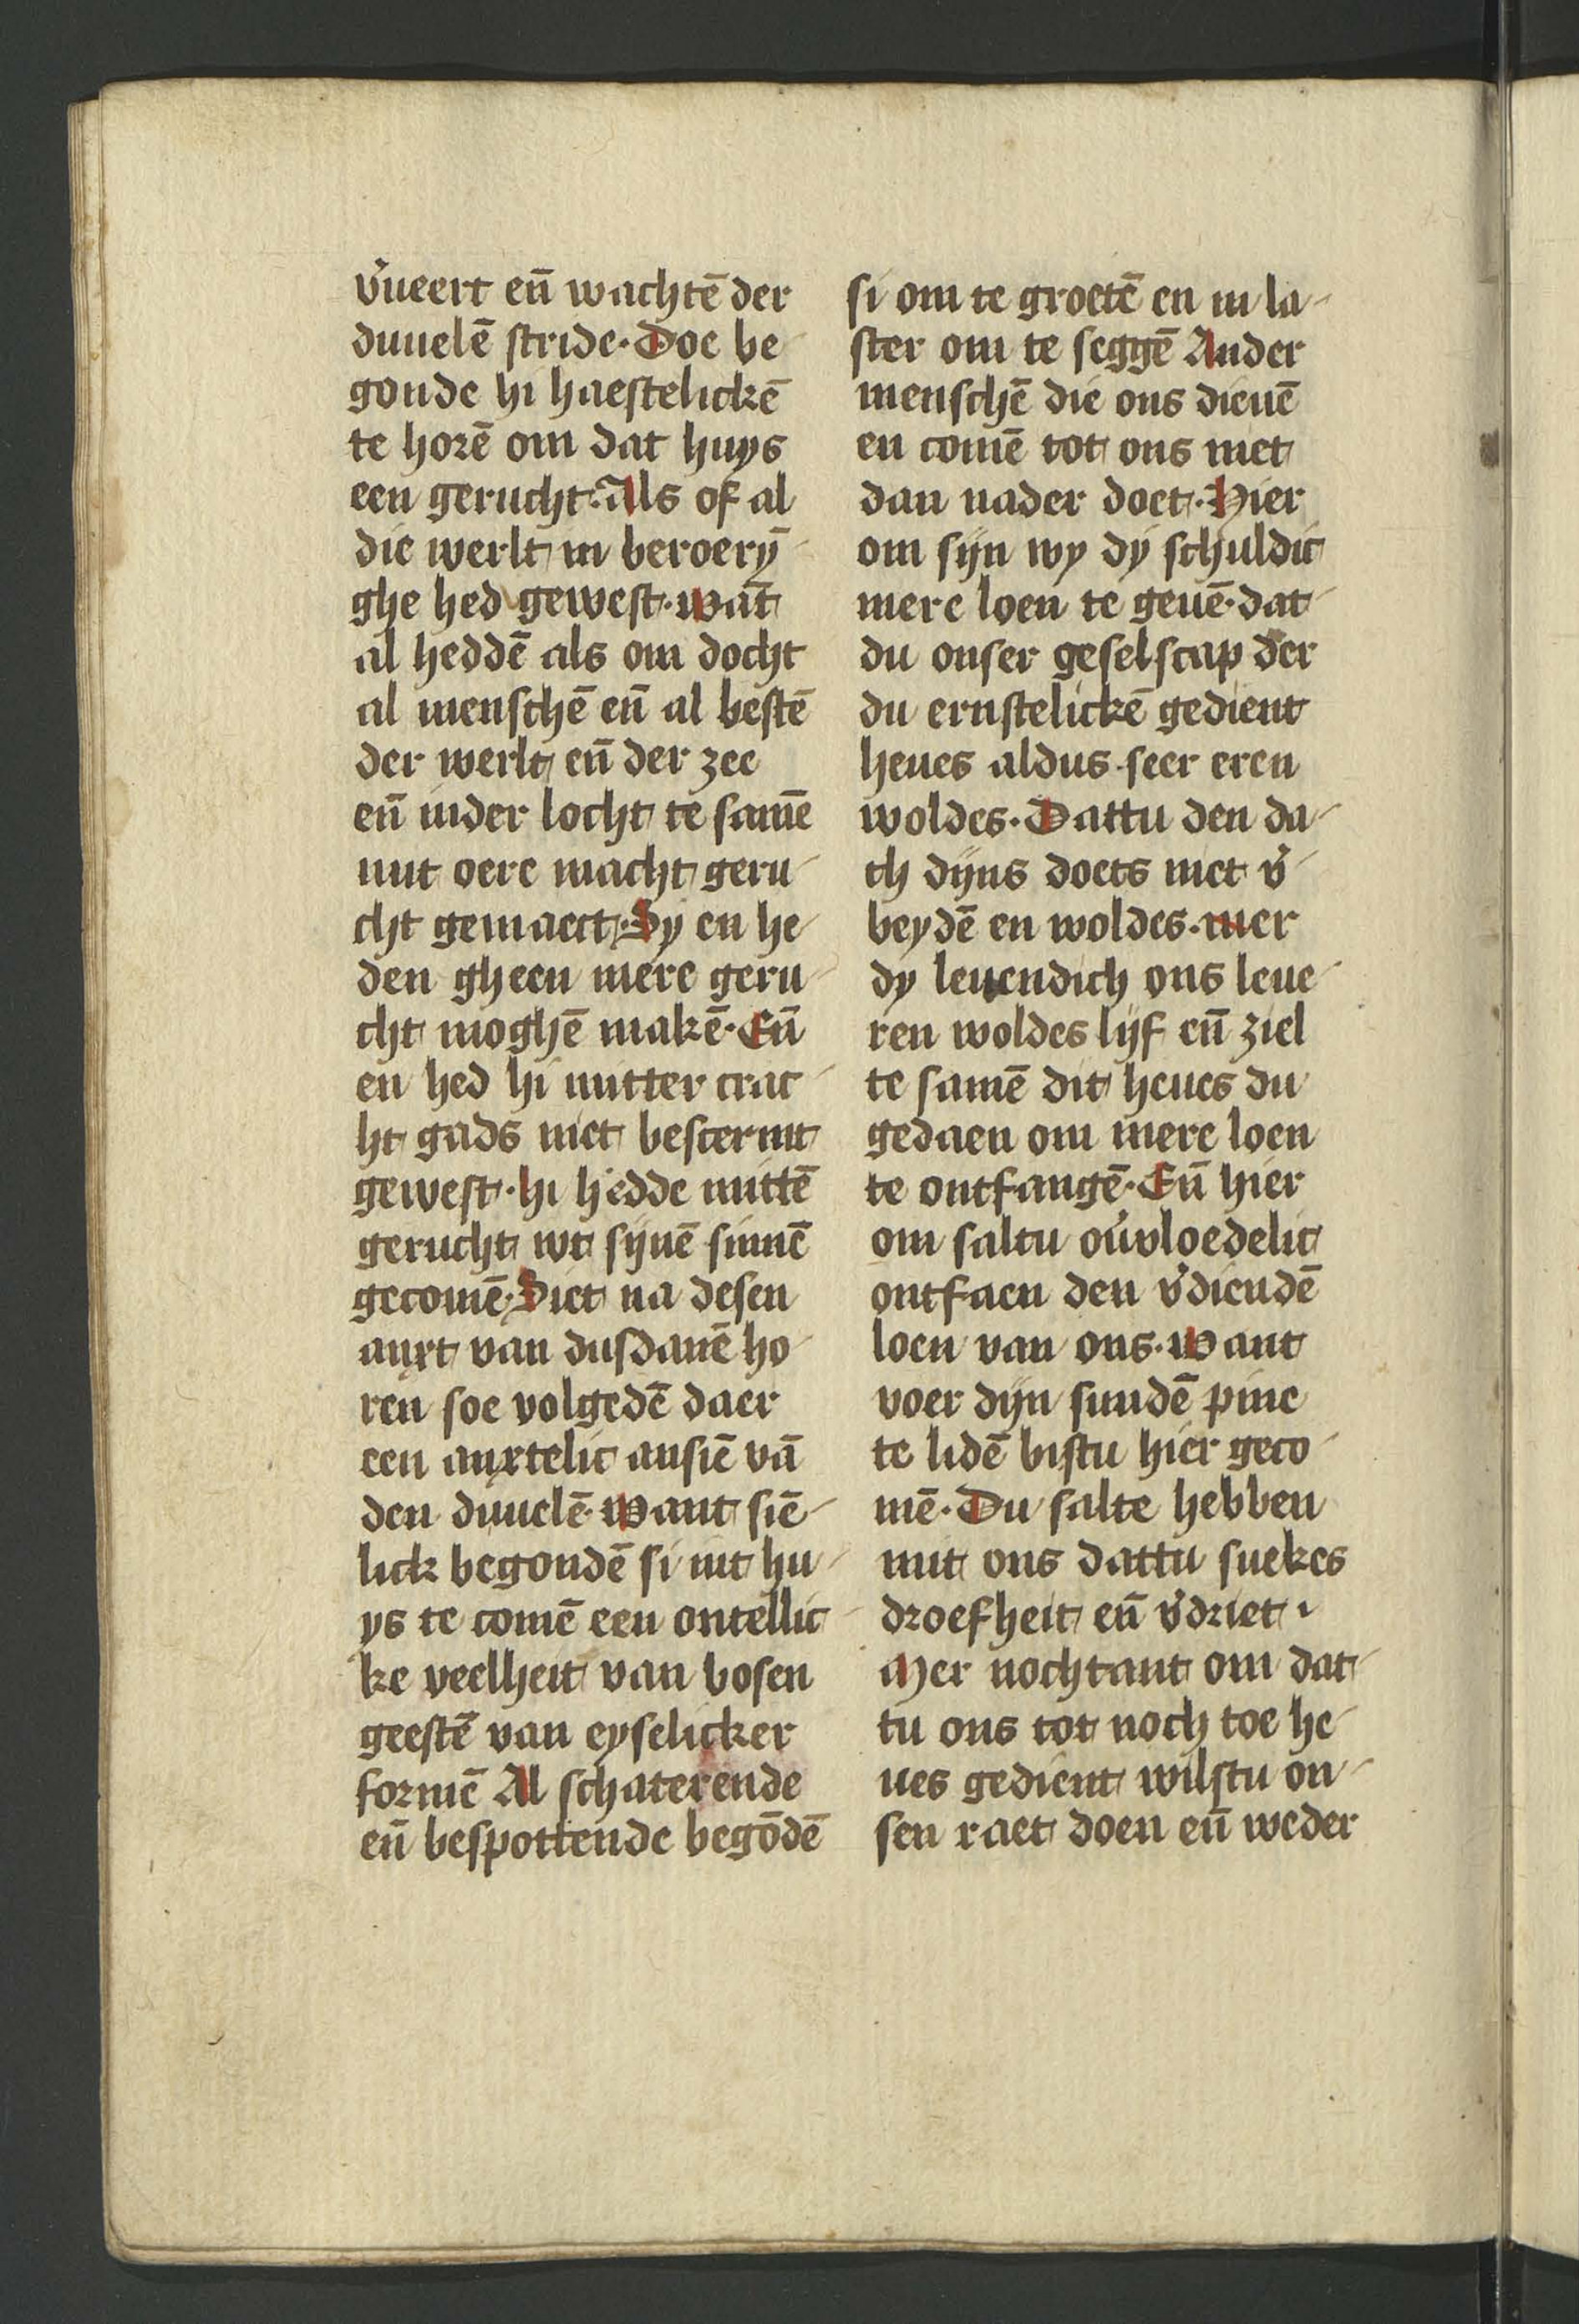 v̓ueert en̄ wachtē der
duuelē stride· Doe be
gonde hi haestelickē
te horē om dat huys
een gerucht· Als of al
die werlt in beroerȳ
ghe hed gewest· wāt
al heddē als om docht
al menschē en̄ al bestē
der werlt en̄ der zee
en̄ inder locht te samē
mit oere macht geru
cht gemaect· Sy en he
den gheen mere geru
cht moghē makē· En̄
en hed hi mitter crac
ht gads niet bescermt
gewest· hi hedde mittē
gerucht wt sijnē sinnē
gecomē· Siet na desen
anxt van dusdanē ho
ren soe volgedē daer
een anxtelic ansiē vā
den duuelē· want siē
lick begondē si int hu
ys te comē een ontellic
ke veelheit van bosen
geestē van eyselicker
formē Al schaterende
en̄ bespottende begōdē
si om te groetē en in la
ster om te seggē Ander
menschē die ons dienē
en comē tot ons niet
dan nader doet· Hier
om sijn wy dy schuldic
mere loen te geuē· dat
du onser geselscap der
du ernstelickē gedient
heues aldus seer eren
woldes· Dattu den da
ch dijns doets niet v̓
beydē en woldes· mer
dy leuendich ons leue
ren woldes lijf en̄ ziel
te samē dit heues du
gedaen om mere loen
te ontfangē· En̄ hier
om saltu ou̓vloedelic
ontfaen den v̓diendē
loen van ons· want
voer dijn sundē pine
te lidē bistu hier geco
mē· Du salte hebben
mit ons dattu suekes
droefheit en̄ v̓driet·
Mer nochtant om dat
tu ons tot noch toe he
ues gedient wilstu on
sen raet doen en̄ weder